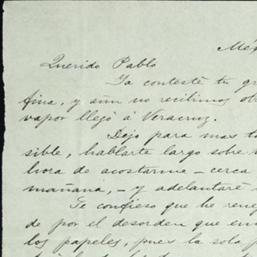 Méx
Querido Pablo
Ya contesté tu gr
fina, y aún no recibimos otr
vapor llegó á Veracruz.
Dejo para mas ta
sible, hablarte largo sobre
hora de acostarme - cerca
mañana, - y adelantaré
Te confieso que he reneg
de por el desorden que en
los papeles, pues la sola p